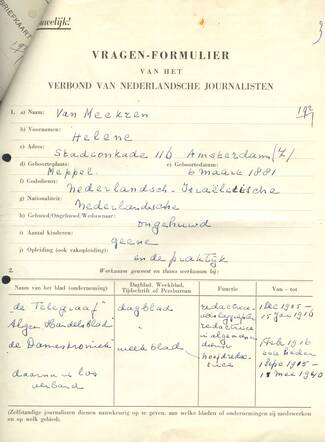 BRIEFKAART
VRAGEN-FORMULIER
VAN HET
VERBOND VAN NEDERLANDSCHE JOURNALISTEN
1. a) Naam: Van Meekren
b) Voornamen: Helene
c) Adres: Stadionkade 116 Amsterdam (Z)
d) Geboorteplaats: Meppel Geboortedatum: 6 maart 1881
f) Godsdienst: Nederlandsch-Israëlitische
g) Nationaliteit: Nederlandsche
h) Gehuwd/Ongehuwd/Weduwnaar: ongehuwd
i) Aantal kinderen: geene
j) Opleiding (ook vakopleiding): in de praktijk
2. Werkzaam geweest en thans werkzaam bij:
Naam van het blad (onderneming) Dagblad, Weekblad, Tijdschrift of Persbureau Functie Van - tot
"de Telegraaf" dagblad redactrice 1 Dec 1905 -
Algem Handelsblad " redactrice
de Dameskroniek weekblad hoofdredactrice Feb 1916
daarna in los verband 1940
(Zelfstandige journalisten dienen nauwkeurig op te geven, aan welke bladen of ondernemingen zij medewerken
en op welk gebied).